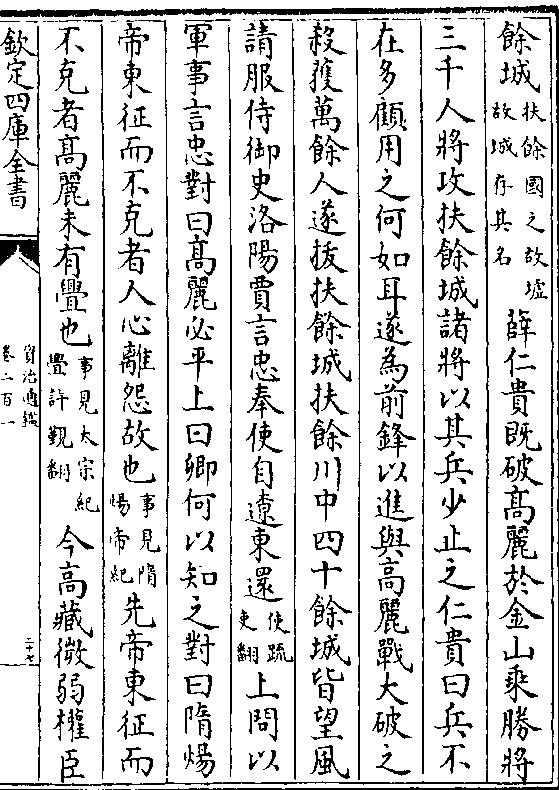 餘城扶餘國之故墟故城存其名薛仁貴既破高麗於金山乘勝將
三千人將攻扶餘城諸將以其兵少止之仁貴曰兵不
在多顧用之何如耳遂為前鋒以進與高麗戰大破之
殺獲萬餘人遂拔扶餘城扶餘川中四十餘城皆望風
請服侍御史洛陽賈言忠奉使自遼東還使疏吏翻上問以
軍事言忠對曰高麗必平上曰卿何以知之對曰隋煬
帝東征而不克者人心離怨故也事見隋煬帝紀先帝東征而
不克者高麗未有釁也事見太宗紀釁許覲翻今高藏微弱權臣
欽定四庫全書
資治通鑑
卷二百一
二十七